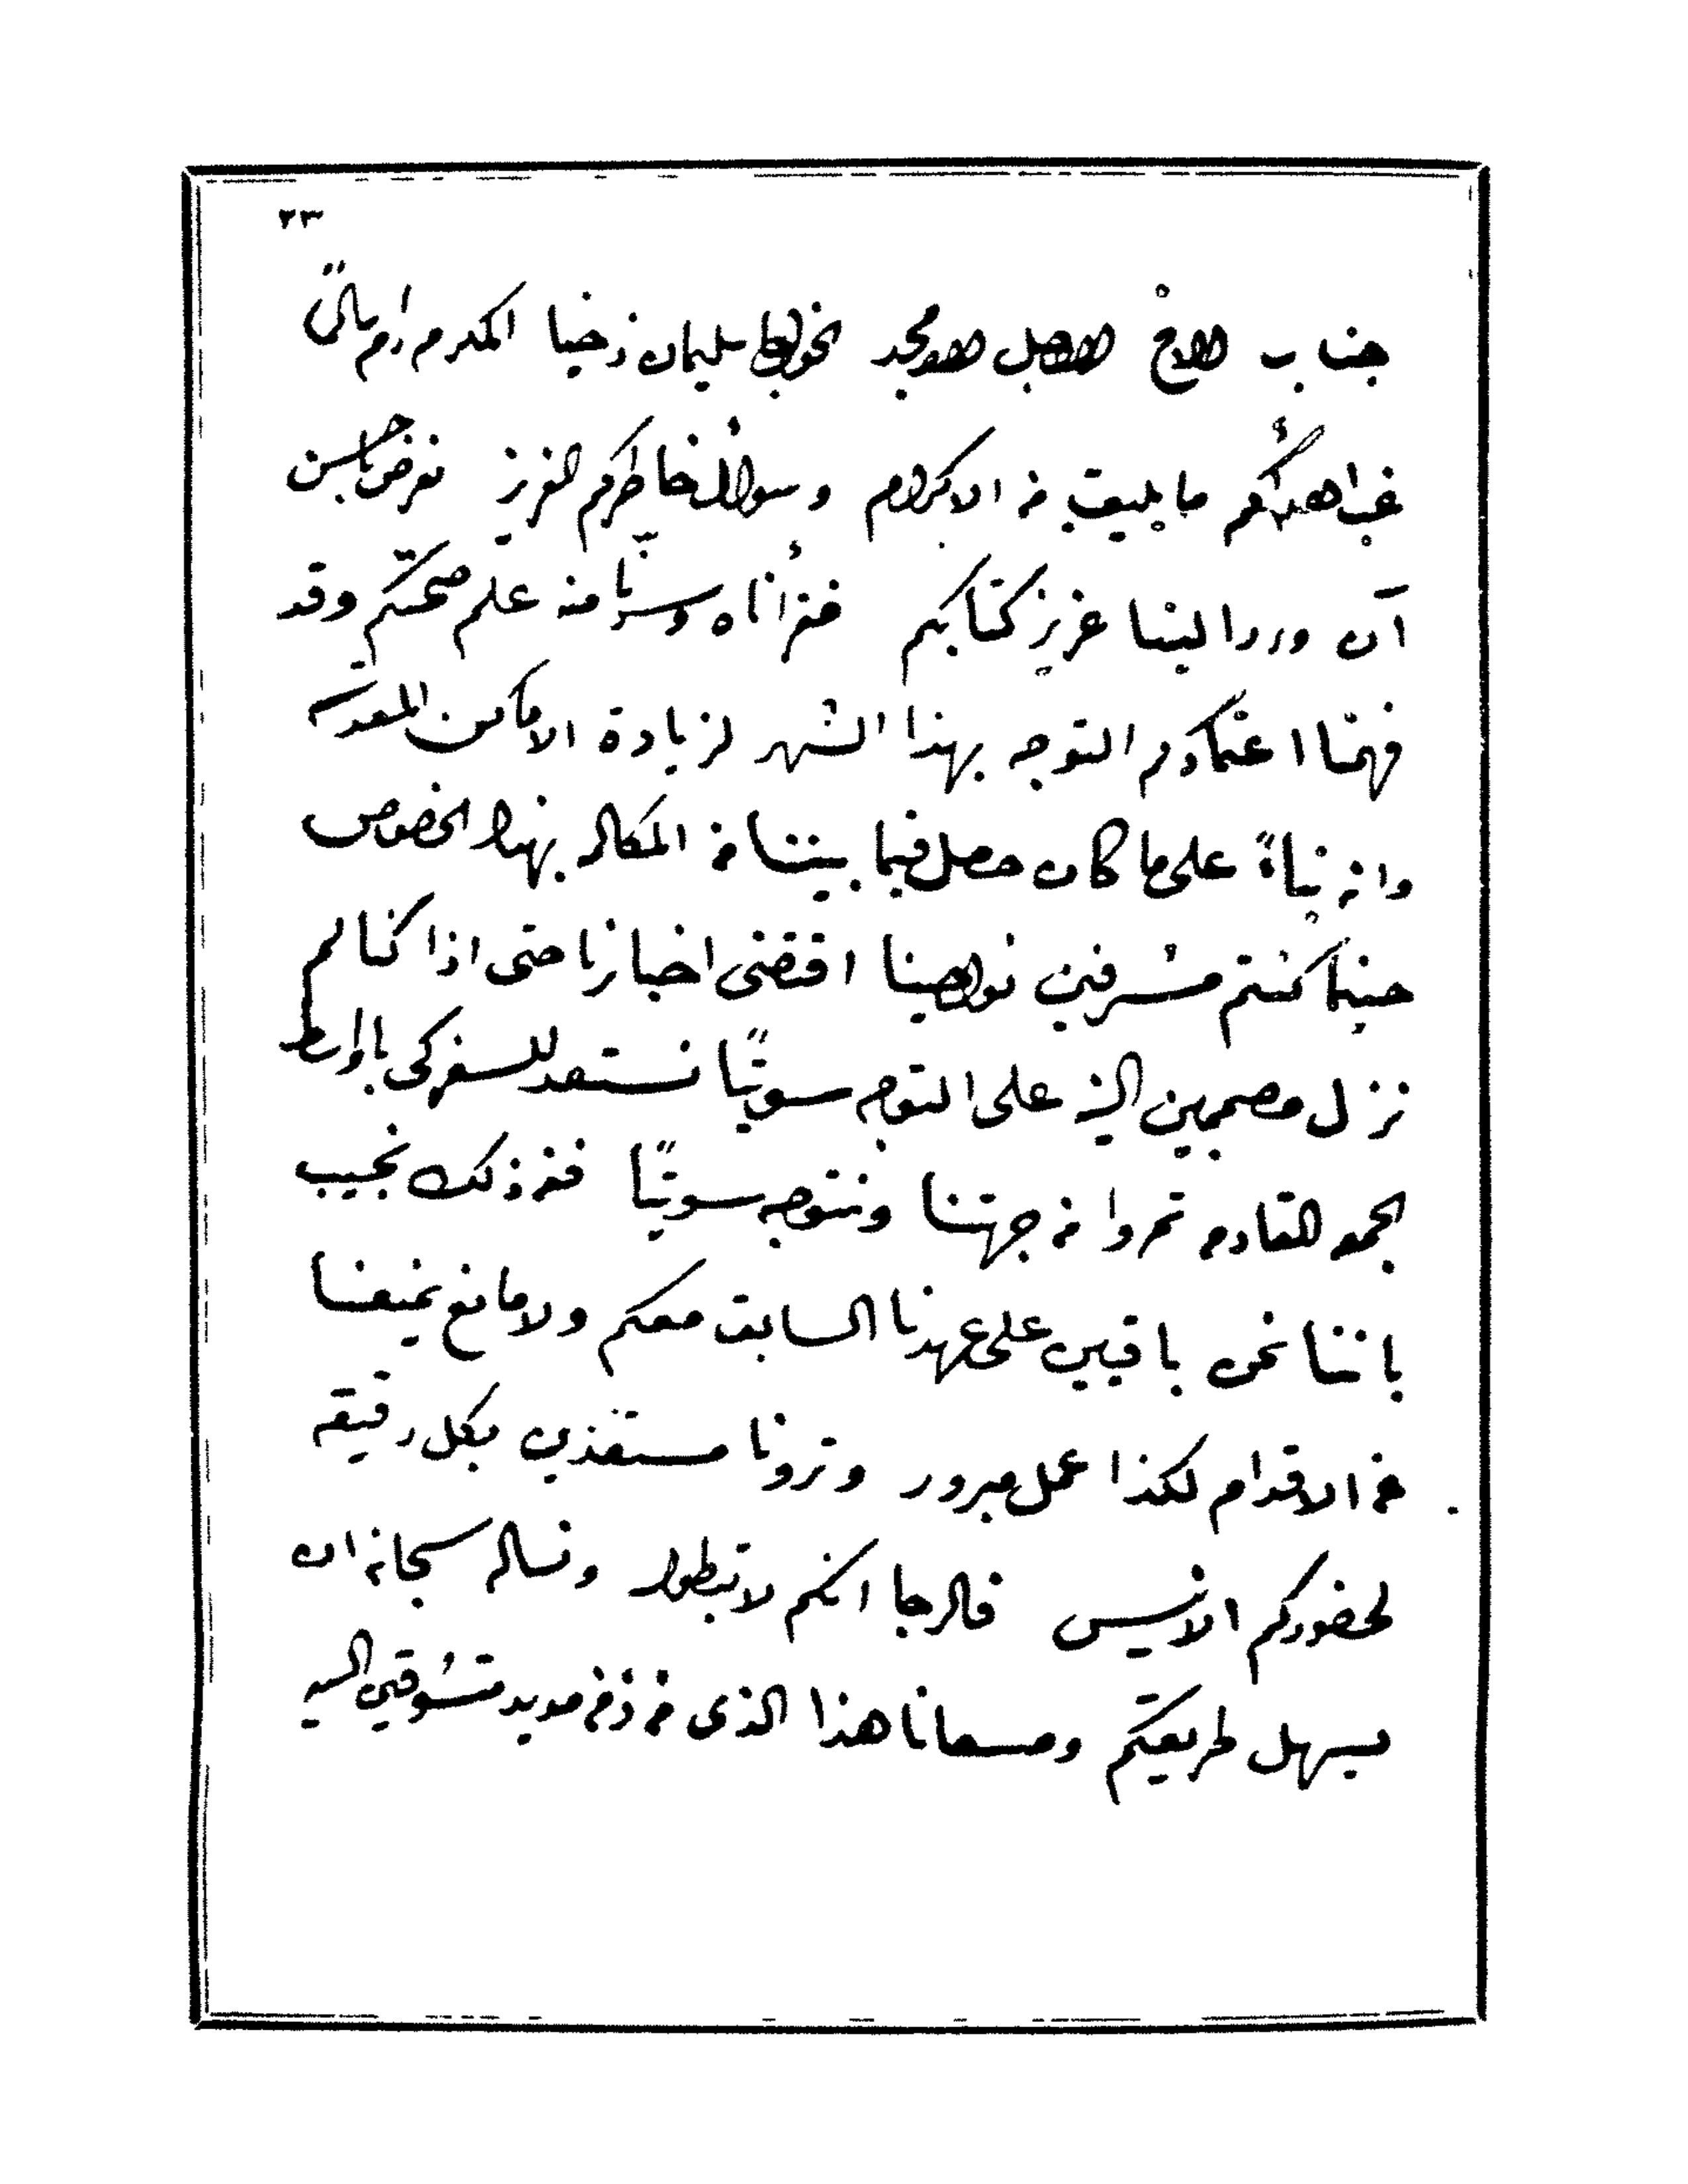 ٢٣
جناب الاخ الاجل الامجد الخواجا سليمان زخيا المكرم دام بقاه
غب اهدائكم ما يليق من الاكرام وسوأل خاطركم العزيز نعرض باحسن
آن ورد الينا عزيز كتابكم فقرأناه وسرّنا منه علم صحتكم وقد
فهمنا اعتمادكم التوجه بهذا الشهر لزيارة الاماكن المقدسه
وانه بناءً على ما كان حصل فيما بيننا من المكالمه بهذا الخصوص
حينما كنتم مشرفين نواحينا اقتضى اخبارنا حتى اذا كنا لم
نزل مصممين النيه على التوجه سويةً نستعد للسفر كي باواسط
الجمعه القادمه تمروا من جهتنا ونتوجه سويةً فعن ذلك نجيب
باننا نحن باقيين على عهدنا السابق معكم ولا مانع يمنعنا
عن الاقدام لكذا عمل مبرور وترونا مستعدين بكل دقيقه
لحضوركم الانيس فالرجا انكم لا تبطوا ونساله سبحانه ان
يسهل طريقكم ومسعانا هذا الذي من زمن مديد متشوقين اليه